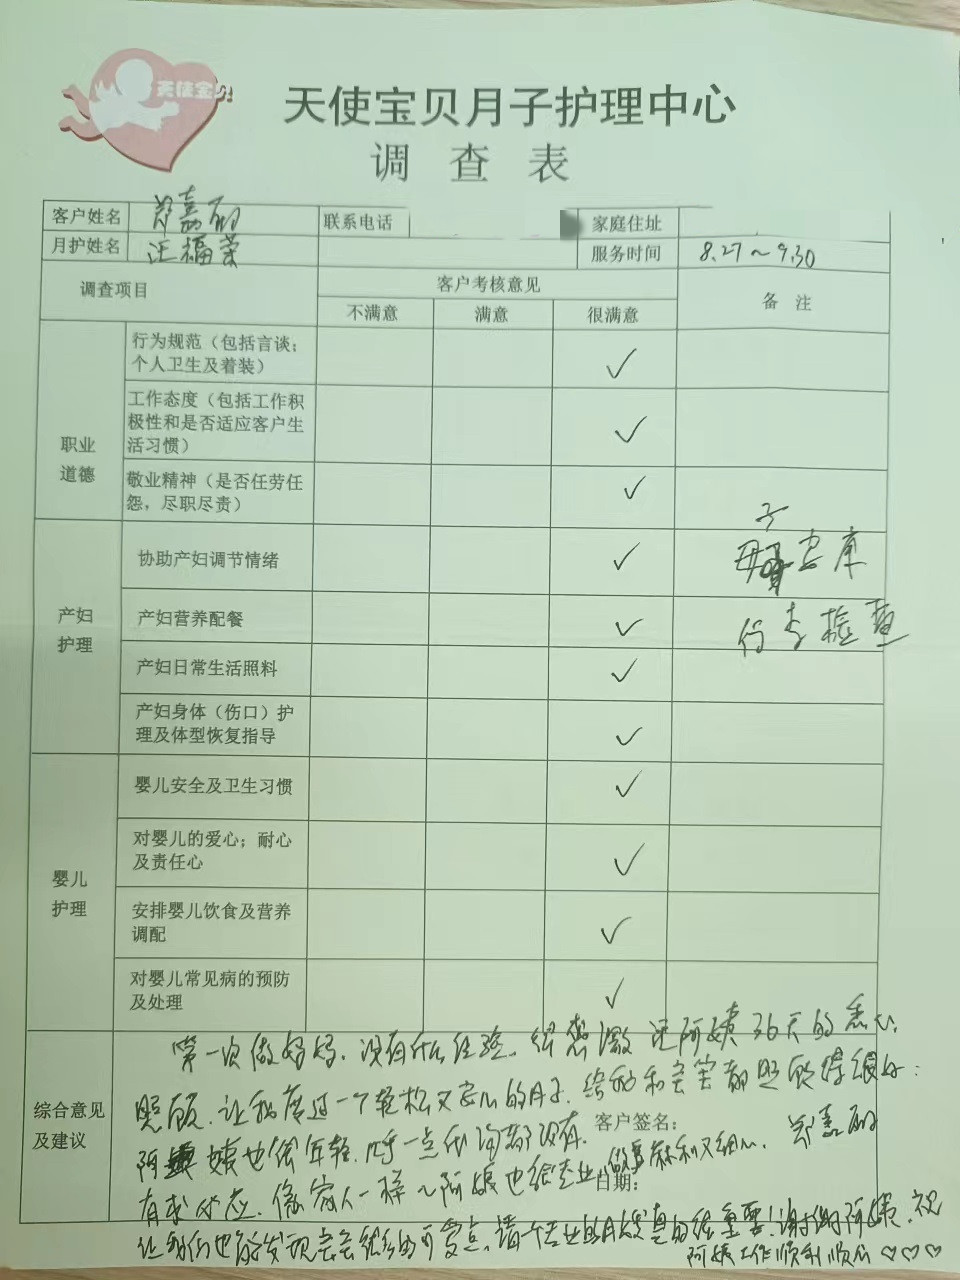 天使宝贝
天使宝贝月子护理中心
调 查 表
客户姓名 郑嘉丽 联系电话 家庭住址
月护姓名 汪福荣 服务时间 8.27~9.30
调查项目 客户考核意见 备 注
不满意 满意 很满意
职业
道德
行为规范（包括言谈；
个人卫生及着装） ✓
工作态度（包括工作积
极性和是否适应客户生
活习惯） ✓
敬业精神（是否任劳任
怨，尽职尽责） ✓
产妇
护理
协助产妇调节情绪 ✓
子
母 安康
产妇营养配餐 ✓
行李检查
产妇日常生活照料 ✓
产妇身体（伤口）护
理及体型恢复指导 ✓
婴儿
护理
婴儿安全及卫生习惯 ✓
对婴儿的爱心；耐心
及责任心 ✓
安排婴儿饮食及营养
调配 ✓
对婴儿常见病的预防
及处理 ✓
综合意见
及建议
第一次做妈妈，没有什么经验，很感激汪阿姨36天的悉心
照顾，让我度过一个轻松又安心的月子，给我和宝宝都照顾得很好；
客户签名： 郑嘉丽
阿姨也很年轻，一点代沟都没有，做事麻利又细心，
日期：
有求必应，像家人一样～阿姨也很专业
让我们也能发现宝宝很多的可爱点，请个专业的月嫂真的很重要！谢谢阿姨，祝
阿姨工作顺利顺心♡♡♡